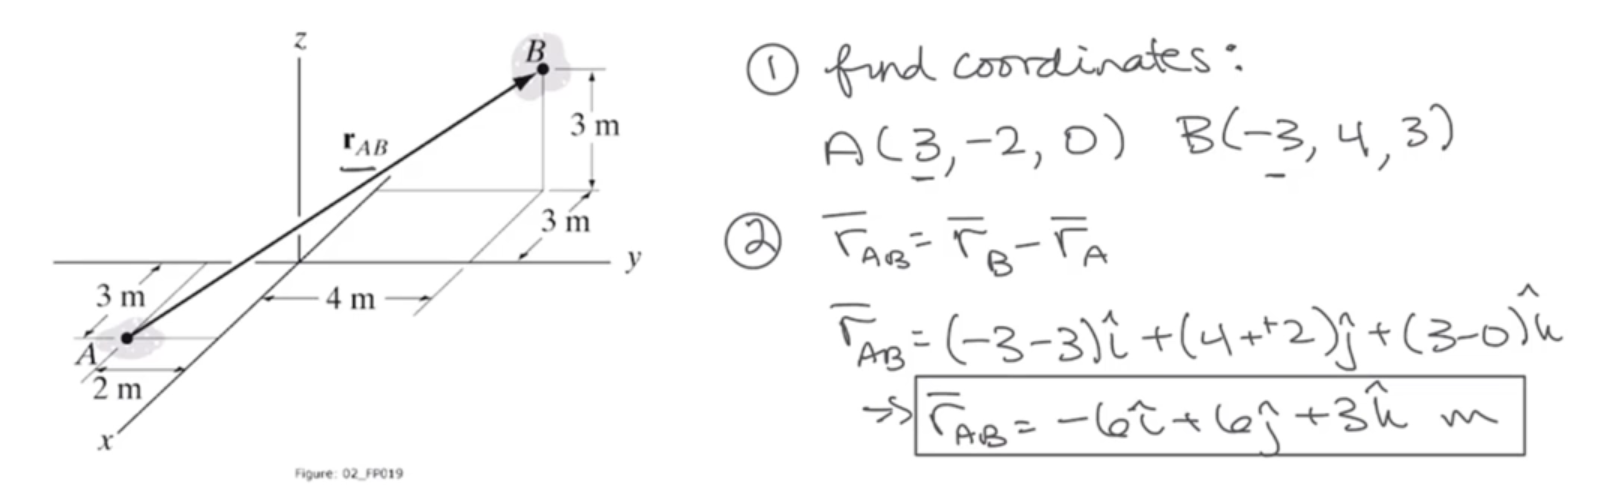 z
B
3 m
r_AB
3 m
y
3 m
4 m
A
2 m
x
Figure: 02_FP019
① find coordinates:
A(3,-2, 0) B(-3, 4, 3)
② r̅_AB = r̅_B - r̅_A
r̅_AB = (-3-3)î + (4++2)ĵ + (3-0)k̂
→> r̅_AB = -6î + 6ĵ + 3k̂ m